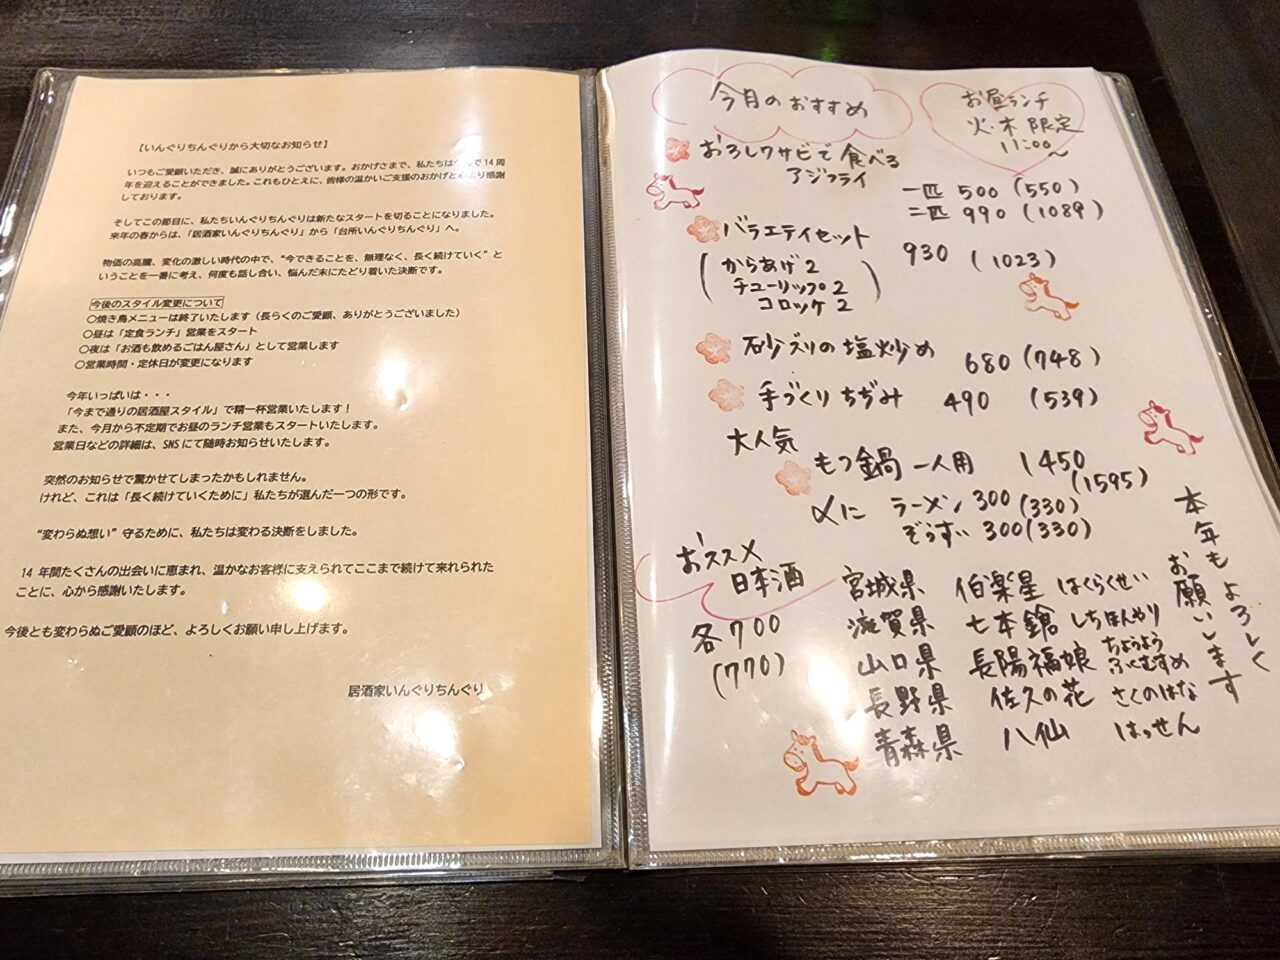 【いんぐりちんぐりから大切なお知らせ】
いつもご愛顧いただき、誠にありがとうございます。おかげさまで、私たちは で14周
年を迎えることができました。これもひとえに、皆様の温かいご支援のおかげと心より感謝
しております。
そしてこの節目に、私たちいんぐりちんぐりは新たなスタートを切ることになりました。
来年の春からは、「居酒家いんぐりちんぐり」から「台所いんぐりちんぐり」へ。
物価の高騰、変化の激しい時代の中で、“今できることを、無理なく、長く続けていく”と
いうことを一番に考え、何度も話し合い、悩んだ末にたどり着いた決断です。
今後のスタイル変更について
○焼き鳥メニューは終了いたします（長らくのご愛顧、ありがとうございました）
○昼は「定食ランチ」営業をスタート
○夜は「お酒も飲めるごはん屋さん」として営業します
○営業時間・定休日が変更になります
今年いっぱいは・・・
「今まで通りの居酒屋スタイル」で精一杯営業いたします！
また、今月から不定期でお昼のランチ営業もスタートいたします。
営業日などの詳細は、SNSにて随時お知らせいたします。
突然のお知らせで驚かせてしまったかもしれません。
けれど、これは「長く続けていくために」私たちが選んだ一つの形です。
“変わらぬ想い”守るために、私たちは変わる決断をしました。
14年間たくさんの出会いに恵まれ、温かなお客様に支えられてここまで続けて来れられた
ことに、心から感謝いたします。
今後とも変わらぬご愛顧のほど、よろしくお願い申し上げます。
居酒家いんぐりちんぐり
今月のおすすめ
お昼ランチ
火・木限定
11:00〜
おろしワサビで食べる
アジフライ
一匹 500 (550)
二匹 990 (1089)
バラエティセット 930 (1023)
(からあげ2
チューリップ2
コロッケ2)
砂ズリの塩炒め 680 (748)
手づくりちぢみ 490 (539)
大人気
もつ鍋 一人用 1450
(1595)
〆に ラーメン 300 (330)
ぞうすい 300 (330)
おススメ
日本酒
各700
(770)
宮城県 伯楽星 はくらくせい
滋賀県 七本鎗 しちほんやり
山口県 長陽福娘 ちょうよう
ふくむすめ
長野県 佐久の花 さくのはな
青森県 八仙 はっせん
本年もよろしく
お願いします